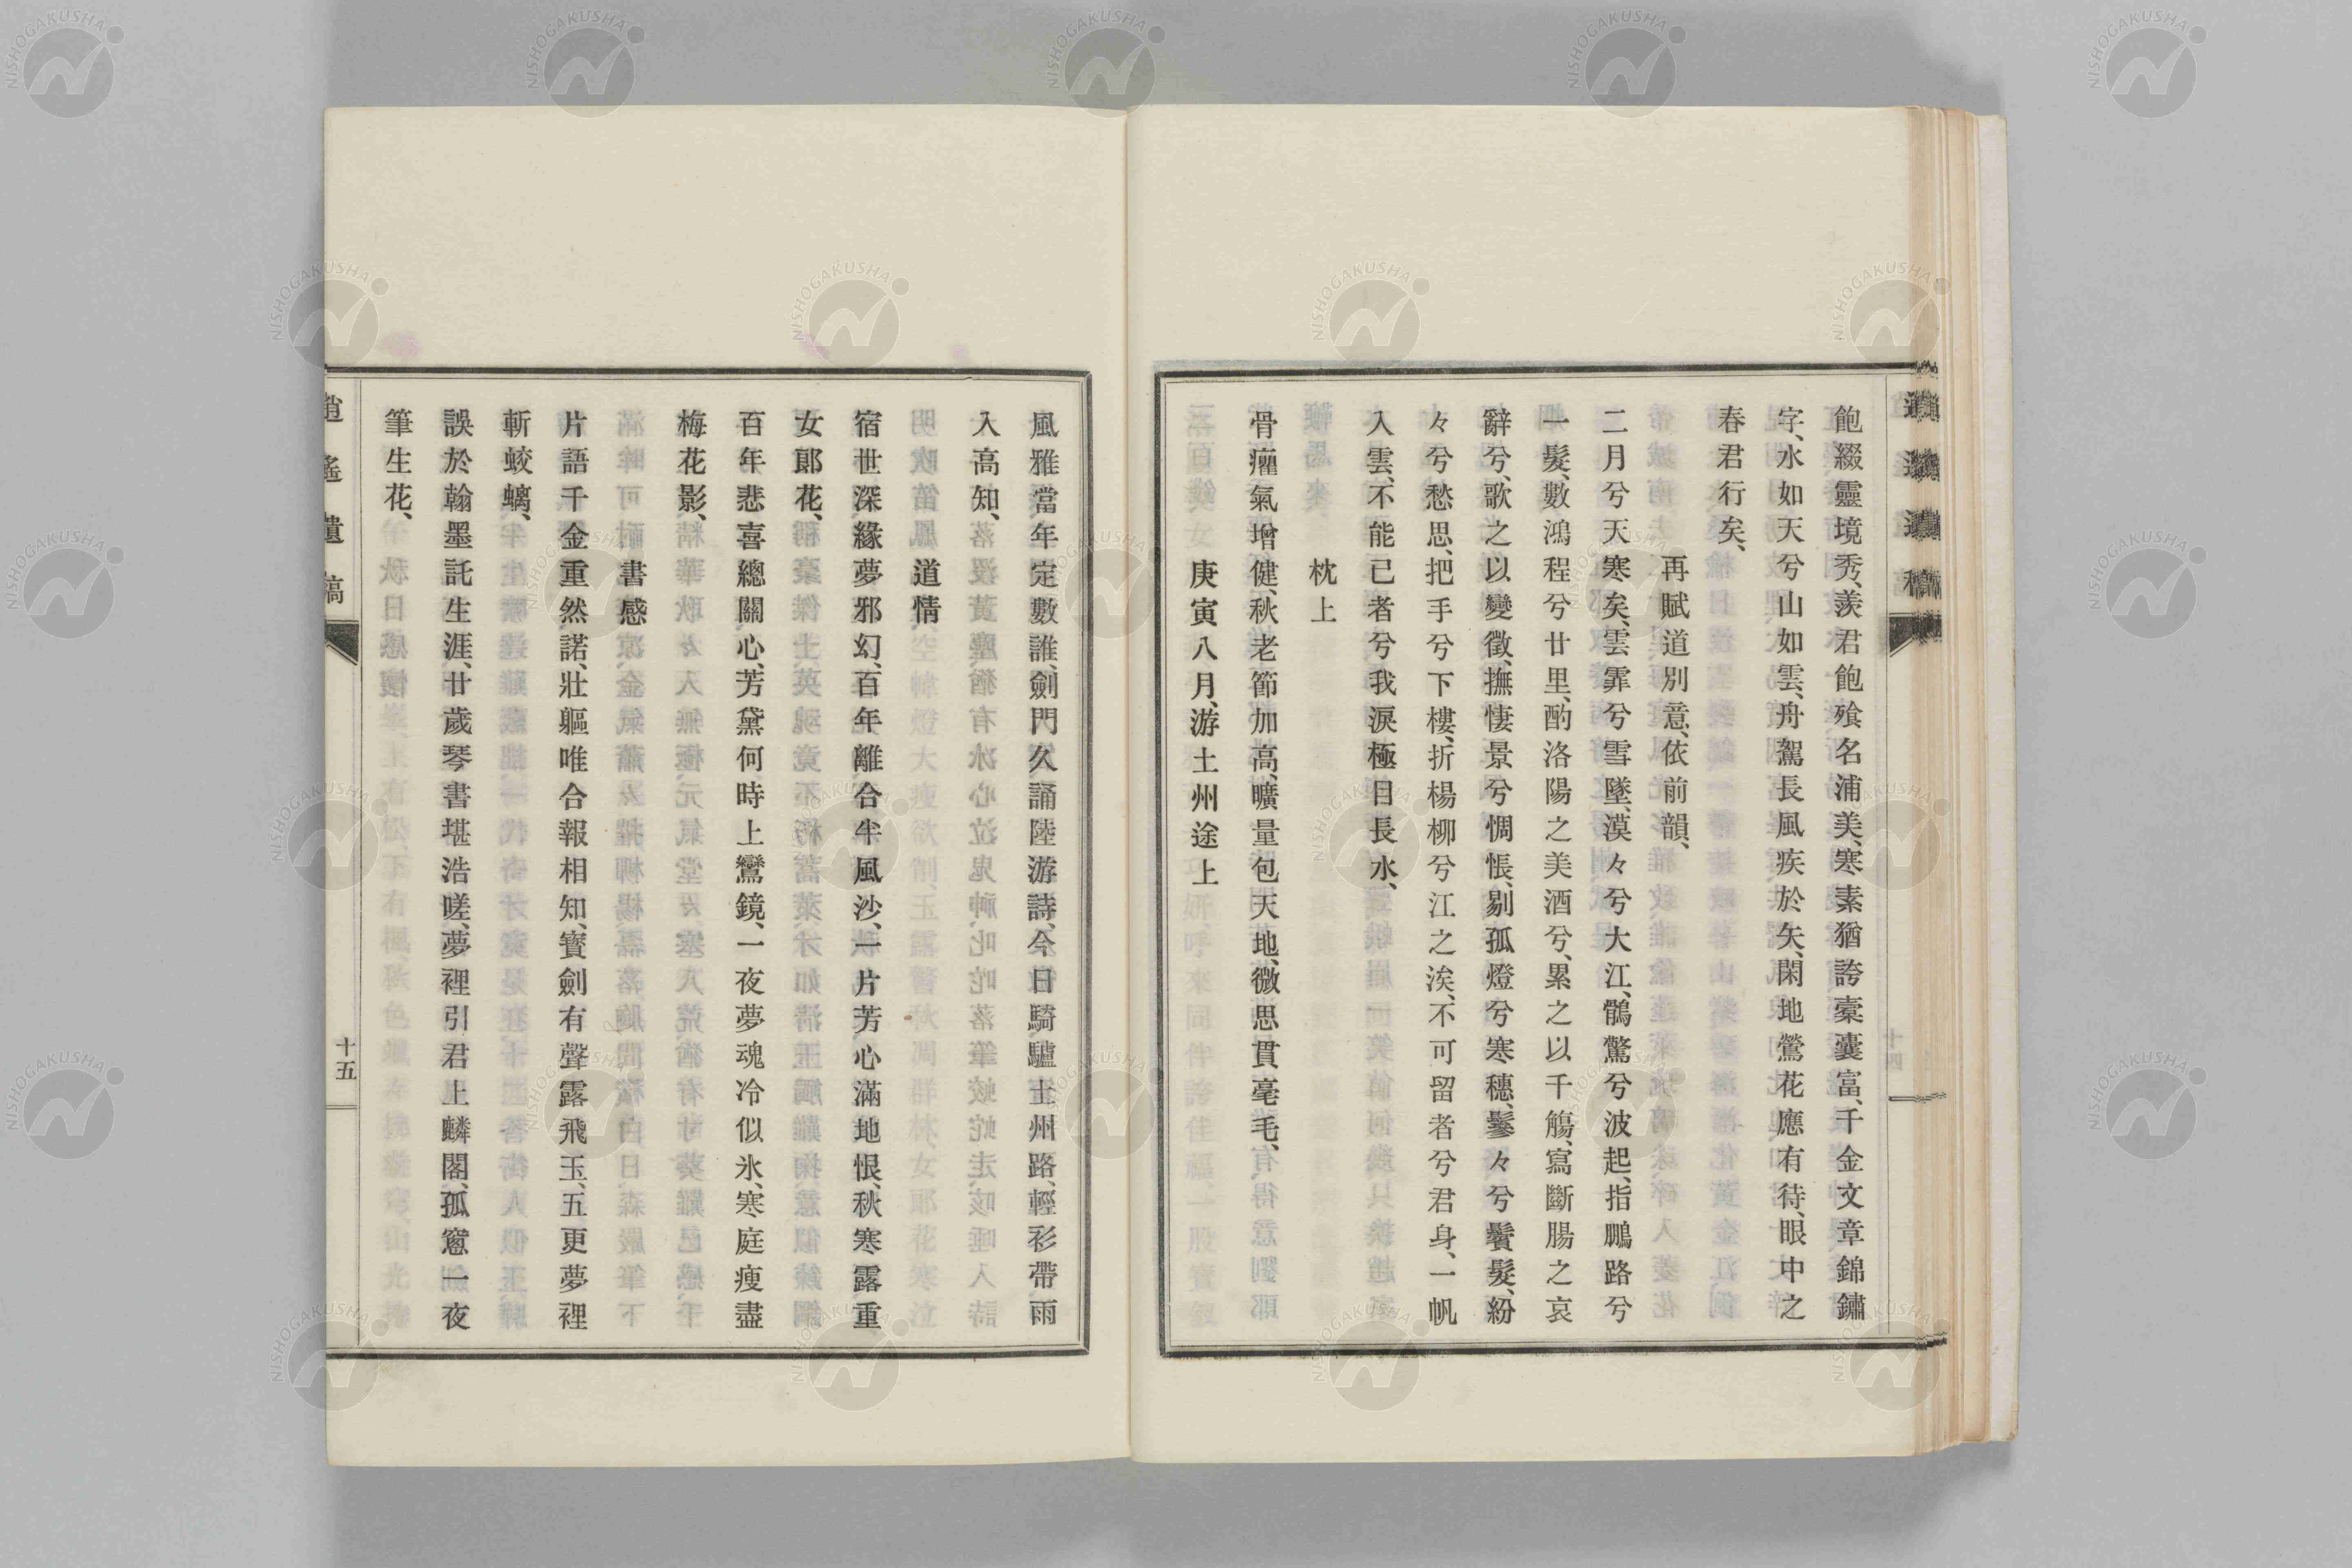 飽綴靈境秀、羨君飽飱名浦美、寒素猶誇槖囊富、千金文章錦鏽
字、水如天兮山如雲、舟駕長風疾於矢、閑地鶯花應有待、眼中之
春君行矣、
再賦道別意、依前韻、
二月兮天寒矣、雲霏兮雪墜、漠々兮大江、鶻驚兮波起、指鵬路兮
一髮、數鴻程兮廿里、酌洛陽之美酒兮、累之以千觴、寫斷腸之哀
辭兮、歌之以變徵、撫悽景兮惆悵、剔孤燈兮寒穗、鬖々兮鬢髮、紛
々兮愁思、把手兮下樓、折楊柳兮江之涘、不可留者兮君身、一帆
入雲、不能已者兮我淚極目長水、
枕上
骨癯氣增健、秋老節加高、曠量包天地、微思貫毫毛、
庚寅八月、游土州途上
風雅當年定數誰、劍門久誦陸游詩、今日騎驢土州路、輕衫帶雨
入高知、
道情
宿世深緣夢邪幻、百年離合半風沙、一片芳心滿地恨、秋寒露重
女郎花、
百年悲喜總關心、芳黛何時上鸞鏡、一夜夢魂冷似氷、寒庭瘦盡
梅花影、
書感
片語千金重然諾、壯軀唯合報相知、寶劍有聲露飛玉、五更夢裡
斬蛟螭、
誤於翰墨託生涯、廿歲琴書堪浩嗟、夢裡引君上麟閣、孤窻一夜
筆生花、
逍遙遺稿
十五
NISHOGAKUSHA